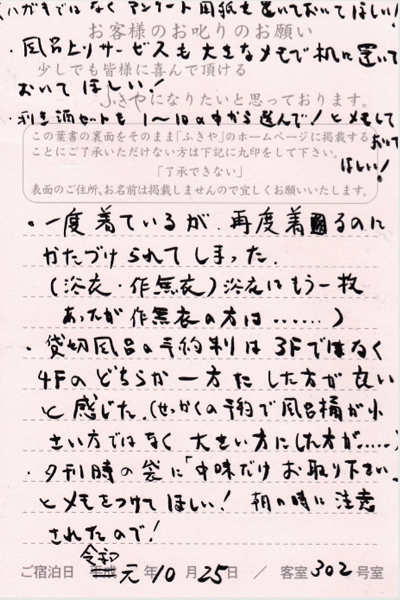 ハガキではなくアンケート用紙も置いておいてほしい!
お客様のお叱りのお願い
・風呂上りサービスも大きなメモで机に置いて
少しでも皆様に喜んで頂ける
おいてほしい!
ふきやになりたいと思っております。
・利き酒セットも1〜10の中から選んで!とメモして
おいて
ほしい!
この葉書の裏面をそのまま「ふきや」のホームページに掲載する
ことにご了承いただけない方は下記に丸印をして下さい。
「了承できない」
表面のご住所、お名前は掲載しませんので宜しくお願いいたします。
・一度着ているが、再度着るのに
かたづけられてしまった。
(浴衣・作無衣)浴衣はもう一枚
あったが作無衣の方は……)
・貸切風呂の予約制は3Fではなく
4Fのどちらか一方にした方が良い
と感じた。(せっかくの予約で風呂桶が小
さい方ではなく大きい方にした方が……)
・夕刊時の袋に「中味だけお取り下さい」
とメモをつけてほしい!朝の時に注意
されたので!
ご宿泊日 令和 元年10月25日 / 客室302号室